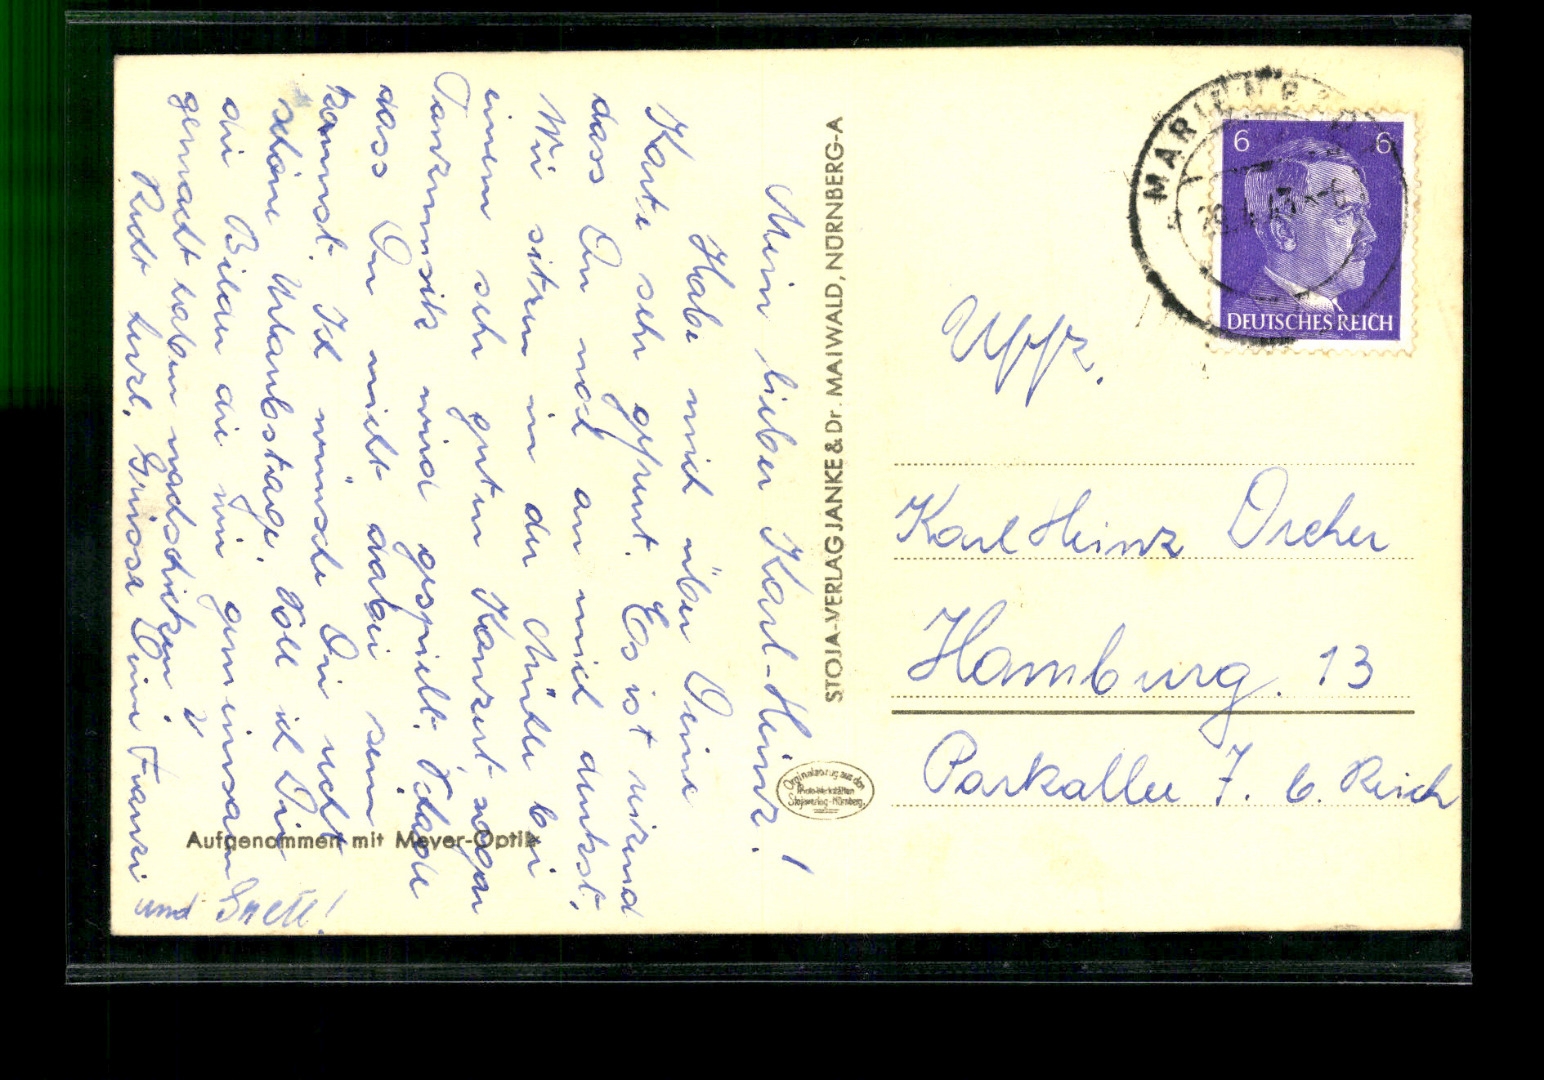 Mein lieber Karl-Heinz!
Habe mich über Deine
Karte sehr gefreut. Es ist reizend
dass Du noch an mich denkst.
Wir sitzen in der Mühle bei
einem sehr guten Konzert, sogar
Tanzmusik wird gespielt. Schade
dass Du nicht dabei sein
kannst. Ich wünsche Dir recht
schöne Urlaubstage. Soll ich Dir
die Bilder die wir gemeinsam
gemacht haben nachschicken?
Recht herzl. Grüsse Deine Franzi
und
Aufgenommen mit Meyer-Optik
STOJA-VERLAG JANKE & Dr. MAIWALD, NÜRNBERG-A
Originalabzug aus den
Photo-Werkstätten
Stojaverlag-Nürnberg
MARIENB
29.4.43
6 6
DEUTSCHES REICH
Uffz.
Karl Heinz
Hamburg. 13
Parkallee 7. b.